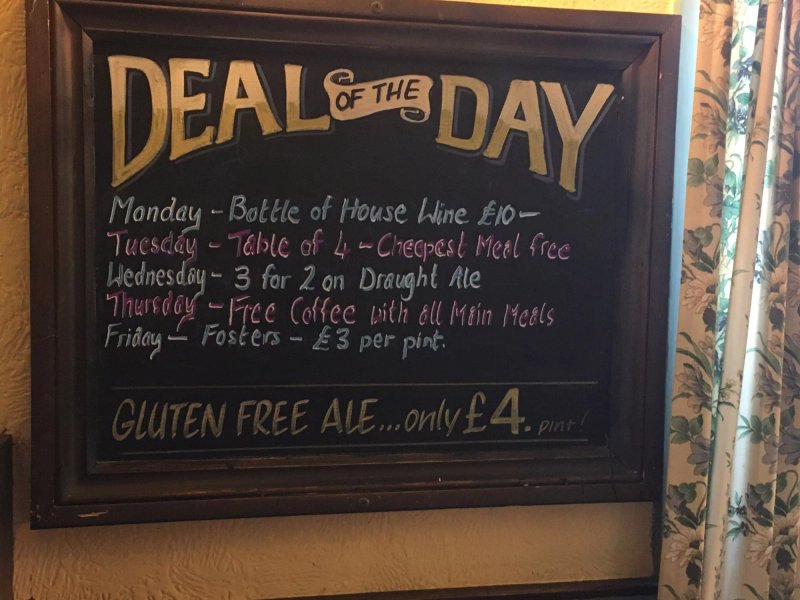 DEAL OF THE DAY
Monday - Bottle of House Wine £10-
Tuesday - Table of 4 - Cheepest Meal free
Wednesday - 3 for 2 on Draught Ale
Thursday - Free Coffee with all Main Meals
Friday - Fosters - £3 per pint.
GLUTEN FREE ALE...only £4. pint!